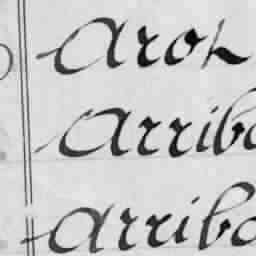 Aroz
Arriba
Arriba